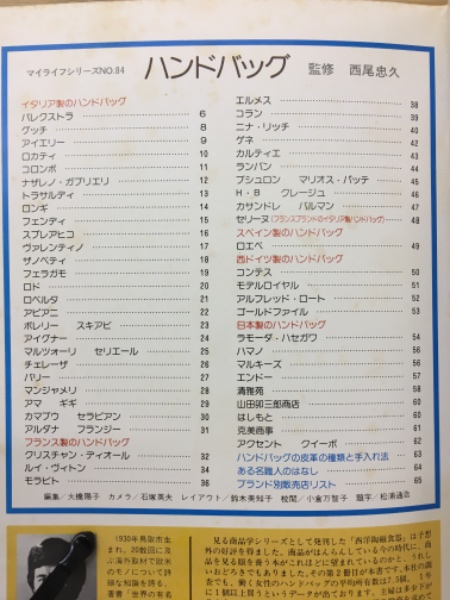 マイライフシリーズNO.84 ハンドバッグ 監修 西尾忠久
イタリア製のハンドバッグ
バレクストラ 6
グッチ 8
アイエリー 9
ロカティ 10
コロンボ 11
ナザレノ・ガブリエリ 12
トラサルディ 13
ロンギ 14
フェンディ 15
スプレアヒコ 16
ヴァレンティノ 17
ザノベティ 18
フェラガモ 19
ロド 20
ロベルタ 21
アピアニ 22
ボレリー スキアビ 23
アイグナー 24
マルツォーリ セリエール 25
チェレーザ 26
バリー 27
マンジャメリ 28
アマ ギギ 29
カマプウ セラピアン 30
アルダナ フランジー 31
フランス製のハンドバッグ
クリスチャン・ディオール 32
ルイ・ヴィトン 34
モラビト 36
エルメス 38
コラン 39
ニナ・リッチ 40
ゲネ 42
カルティエ 43
ランバン 44
ブシュロン マリオス・パッテ 45
H・B クレージュ 46
カサンドレ バルマン 47
セリーヌ(フランスブランドのイタリア製ハンドバッグ) 48
スペイン製のハンドバッグ
ロエベ 49
西ドイツ製のハンドバッグ
コンテス 50
モデルロイヤル 51
アルフレッド・ロート 52
ゴールドファイル 53
日本製のハンドバッグ
ラモーダ・ハセガワ 54
ハマノ 56
マルキーズ 56
エンドー 57
清雅苑 58
山田卯三郎商店 58
はしもと 60
克美商事 61
アクセント クイーポ 62
ハンドバッグの皮革の種類と手入れ法 63
ある名職人のはなし 64
ブランド別販売店リスト 65
編集/大橋陽子 カメラ/石塚英夫 レイアウト/鈴木美知子 校閲/小倉万智子 題字/松浦通浩
1930年鳥取市生
まれ。20数回に及
ぶ海外取材で欧米
のモノについて詳
細な知識を誇る。
著書「世界の有名
見る商品学シリーズとして発刊した「西洋陶磁食器」は予想
外の好評を得ました。商品がはんらんしている今の時代に、商
品を見る眼を養う本がこれほどに望まれているのかと、うれし
いおどろきでもありました。その第2冊目が本書です。本社の調
査でも、働く女性のハンドバッグの平均所有数は7.5個。1年
に1個以上買うというデータが出ております。主婦は多少下が